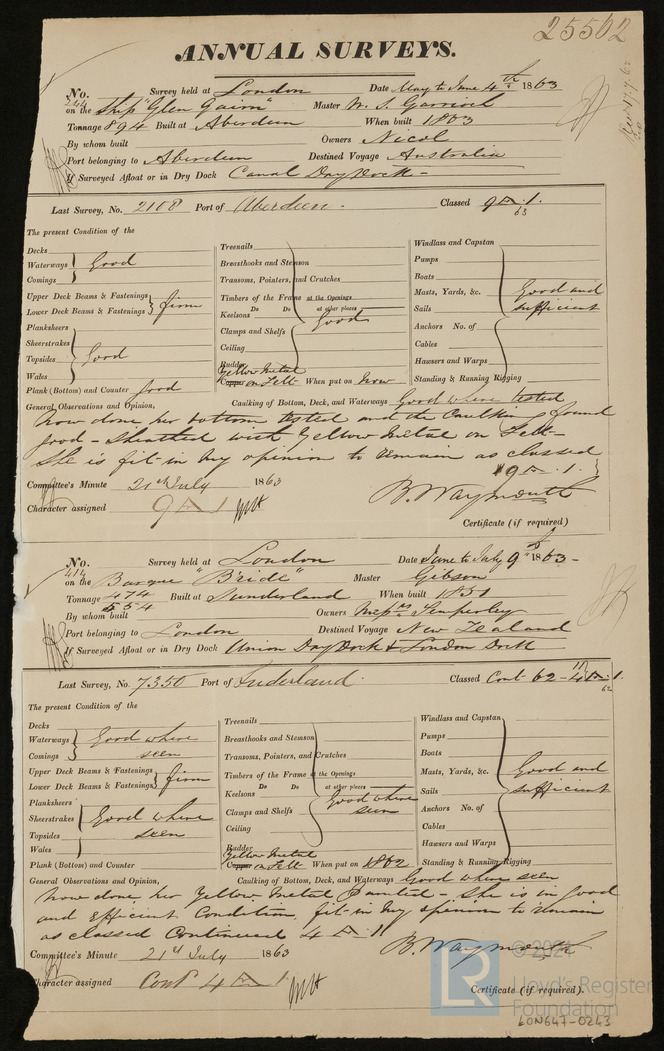 25562
ANNUAL SURVEYS.
No. 244 Survey held at London Date May to June 4th 1863
on the Ship "Glen Gairn" Master
Tonnage 894 Built at Aberdeen When built 1863
By whom built Owners Nicol
Port belonging to Aberdeen Destined Voyage Australia
If Surveyed Afloat or in Dry Dock Canal Dry Dock -
Last Survey, No. 2108 Port of Aberdeen. Classed 9 A. 1.
63
The present Condition of the
Decks
Waterways Good
Comings
Upper Deck Beams & Fastenings
Lower Deck Beams & Fastenings firm
Planksheers
Sheerstrakes
Topsides Good
Wales
Plank (Bottom) and Counter good
Treenails
Breasthooks and Stemson
Transoms, Pointers, and Crutches
Timbers of the Frame at the Openings
Do Do at other places
Keelsons Good
Clamps and Shelfs
Ceiling
Rudder
Yellow Metal
Copper on Felt When put on now
Windlass and Capstan
Pumps
Boats
Masts, Yards, &c. Good and
Sails sufficient
Anchors No. of
Cables
Hawsers and Warps
Standing & Running Rigging
General Observations and Opinion, Caulking of Bottom, Deck, and Waterways Good where tested
now done, her bottom tested and the Caulking found
good - Sheathed with Yellow Metal on Felt -
She is fit in my opinion to remain as classed
9 A. 1.
Committee's Minute 21st July 1863
B. Waymouth
Character assigned 9 A 1
Certificate (if required)
No. 414 Survey held at London Date June to July 9th 1863 -
on the Barque "Bride" Master Gibson
Tonnage 474 Built at Sunderland When built 1851
554
By whom built Owners Messrs Temperley
Port belonging to London Destined Voyage New Zealand
If Surveyed Afloat or in Dry Dock Union Dry Dock & London Dock
Last Survey, No. 7350 Port of Sunderland. Classed Cont 62 - 4 A. 1.
62
The present Condition of the
Decks
Waterways Good where
Comings seen
Upper Deck Beams & Fastenings
Lower Deck Beams & Fastenings firm
Planksheers
Sheerstrakes Good where
Topsides seen
Wales
Plank (Bottom) and Counter
Treenails
Breasthooks and Stemson
Transoms, Pointers, and Crutches
Timbers of the Frame at the Openings
Do Do at other places
Keelsons Good where
Clamps and Shelfs seen
Ceiling
Rudder
Yellow Metal
Copper on Felt When put on 1862
Windlass and Capstan
Pumps
Boats
Masts, Yards, &c. Good and
Sails sufficient
Anchors No. of
Cables
Hawsers and Warps
Standing & Running Rigging
General Observations and Opinion, Caulking of Bottom, Deck, and Waterways Good where seen
now done, her Yellow Metal - She is in good
and Efficient Condition, fit in my opinion to remain
as classed Continued 4 A. 1
Committee's Minute 21st July 1863
B. Waymouth
Character assigned Cont 4 A 1
Certificate (if required).
LR
© 2021
Lloyd's Register
Foundation
LON647-0243